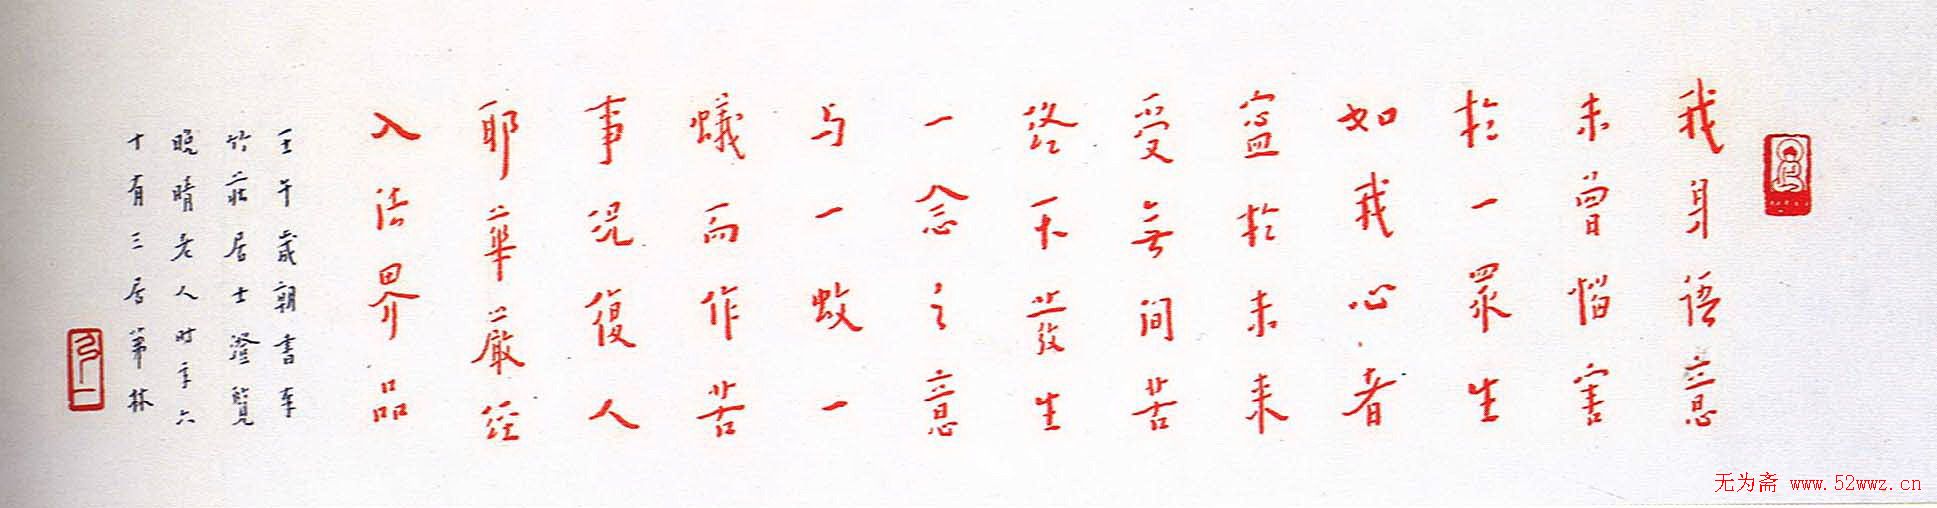 我身語意
未曾惱害
於一眾生
如我心者
寍於未来
受無间苦
終不發生
一念之意
与一蚊一
蟻而作苦
事況復人
耶華嚴経
入法界品
壬午歲朝書奉
竹莊居士澄覽
晚晴老人时年六
十有三居茀林
弘一
无为斋 www.52wwz.cn